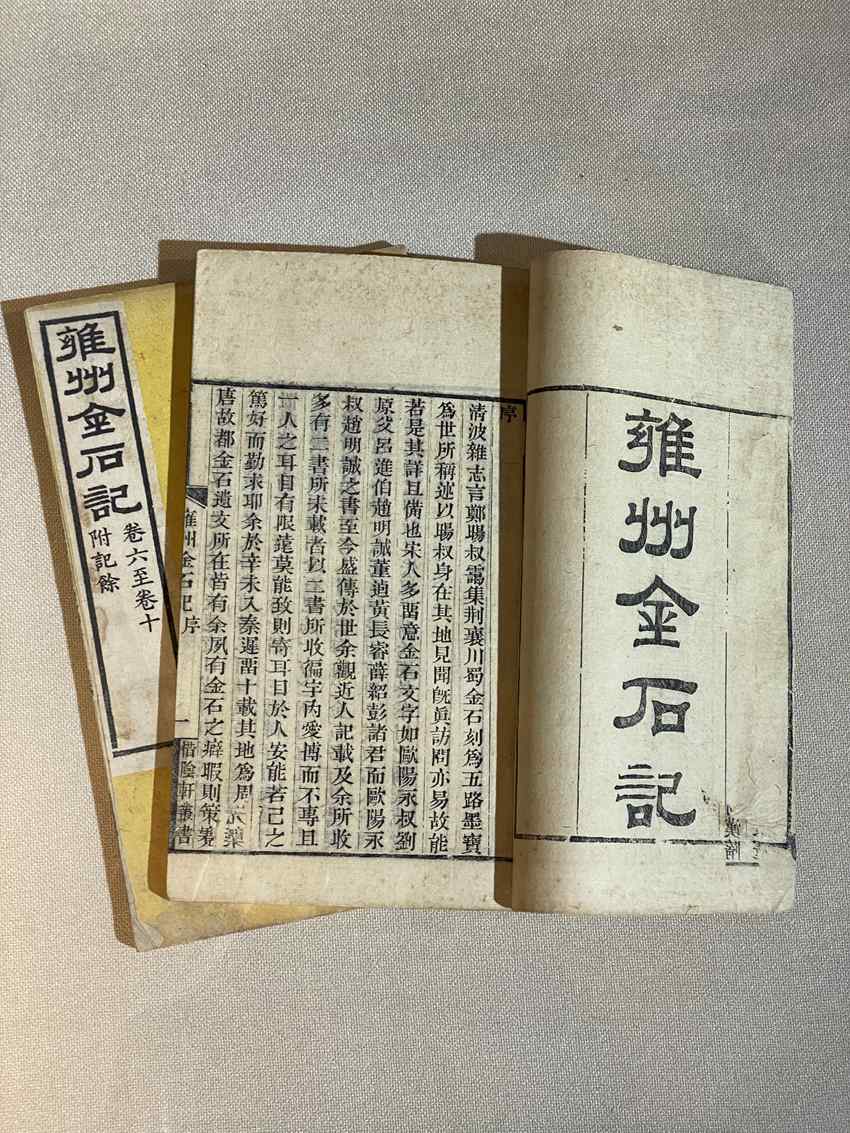 雍州金石記
序
清波雜志言鄭暘叔靄集荆襄川蜀金石刻爲五路墨寶
爲世所稱述以暘叔身在其地見聞旣眞訪問亦易故能
若是其詳且備也宋人多畱意金石文字如歐陽永叔劉
原父呂進伯趙明誠董逌黃長睿薛紹彭諸君而歐陽永
叔趙明誠之書至今盛傳於世余觀近人記載及余所收
多有二書所未載者以二書所收徧宇內愛博而不專且
一人之耳目有限莫能致則寄耳目於人安能若己之
篤好而勤求耶余於辛未入秦遲畱十載其地爲周
唐故都金石遺文所在皆有余夙有金石之癖暇則策蹇
雍州金石記序 一 惜陰軒叢書
雍州金石記 卷六至卷十
附記餘